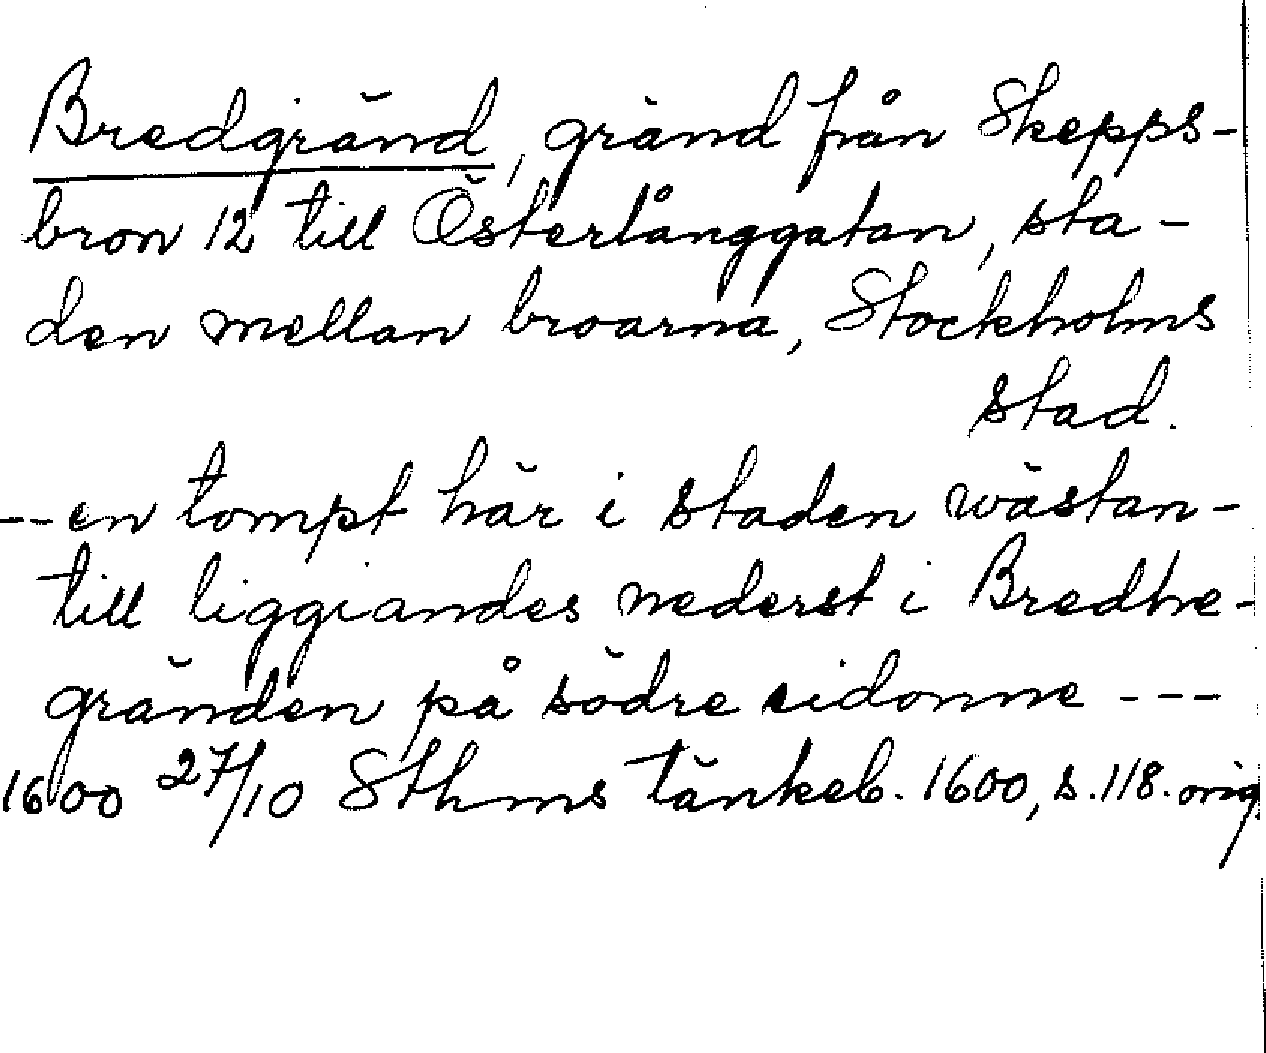 Bredgränd, gränd från Skepps-
bron 12 till Österlånggatan, sta-
den mellan broarna, Stockholms
stad.
--en tompt här i staden wästan-
till liggiandes nederst i Bredhe-
gränden på södre sidonne ---
1600 27/10 Sthms tänkeb. 1600, s. 118. orig.